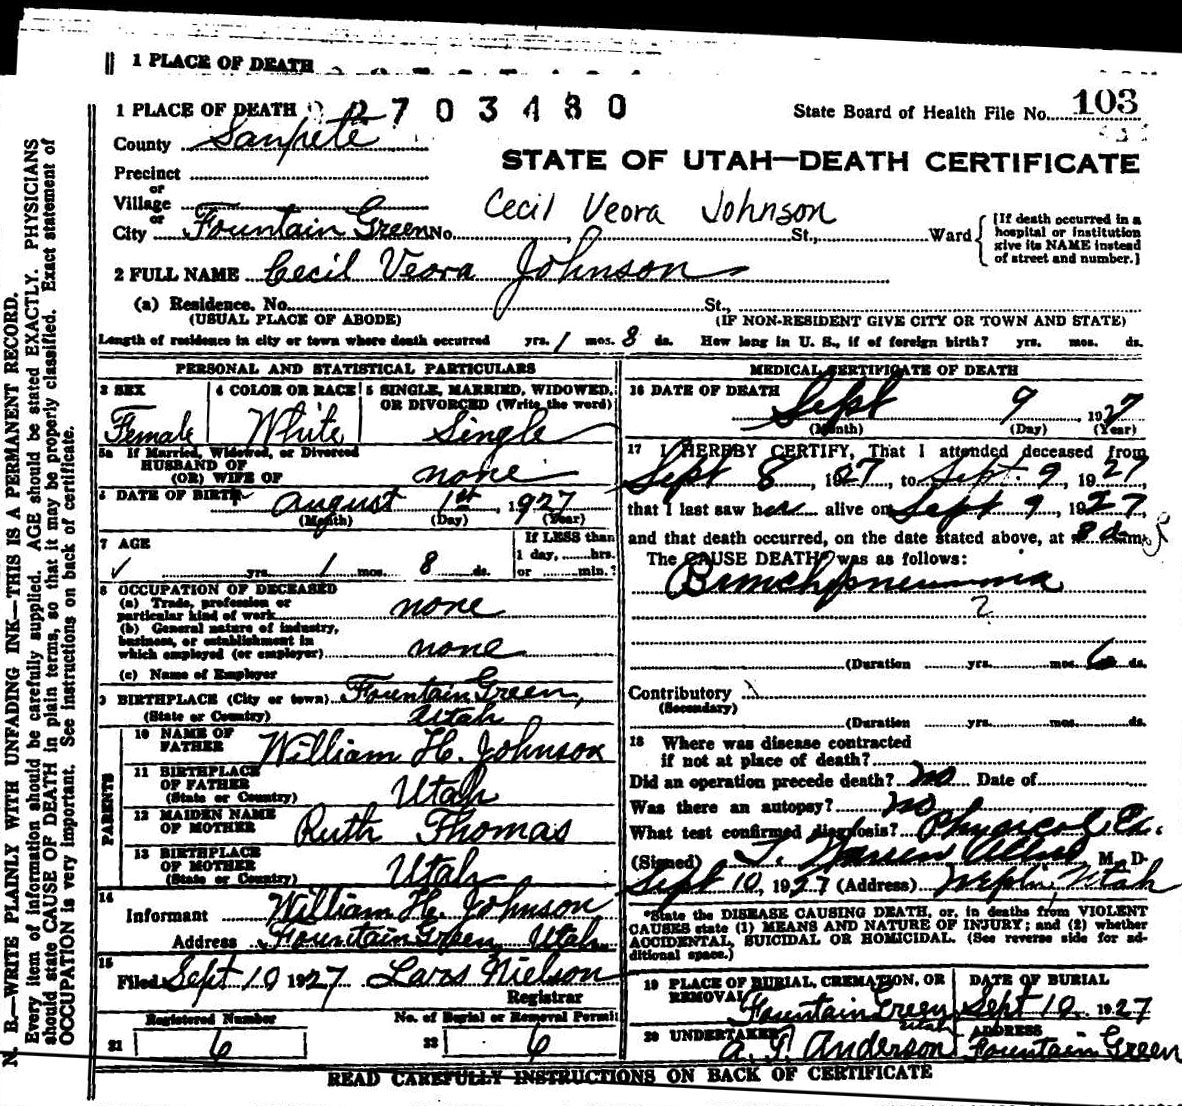 1 PLACE OF DEATH
1 PLACE OF DEATH 703480 State Board of Health File No. 103
County Sanpete
STATE OF UTAH—DEATH CERTIFICATE
Precinct
or
Village
Cecil Veora Johnson
or
City Fountain Green No. St., Ward
[If death occurred in a
hospital or institution
give its NAME instead
of street and number.]
2 FULL NAME Cecil Veora Johnson
(a) Residence. No. St.,
(USUAL PLACE OF ABODE) (IF NON-RESIDENT GIVE CITY OR TOWN AND STATE)
Length of residence in city or town where death occurred yrs. 1 mos. 8 ds. How long in U. S., if of foreign birth? yrs. mos. ds.
PERSONAL AND STATISTICAL PARTICULARS
3 SEX
Female
4 COLOR OR RACE
White
5 SINGLE, MARRIED, WIDOWED,
OR DIVORCED (Write the word)
Single
5a If Married, Widowed, or Divorced
HUSBAND OF
(OR) WIFE OF none
6 DATE OF BIRTH August 1st, 1927
(Month) (Day) (Year)
7 AGE
yrs. 1 mos. 8 ds.
If LESS than
1 day, ......hrs.
or ......min.?
8 OCCUPATION OF DECEASED
(a) Trade, profession or
particular kind of work none
(b) General nature of industry,
business, or establishment in
which employed (or employer) none
(c) Name of Employer
9 BIRTHPLACE (City or town) Fountain Green,
(State or Country) Utah
PARENTS
10 NAME OF
FATHER William H. Johnson
11 BIRTHPLACE
OF FATHER
(State or Country) Utah
12 MAIDEN NAME
OF MOTHER Ruth Thomas
13 BIRTHPLACE
OF MOTHER
(State or Country) Utah
14
Informant William H. Johnson
Address Fountain Green, Utah
15
Filed Sept 10 1927 Lars Nielson
Registrar
Registered Number No. of Burial or Removal Permit
21 6 22 6
MEDICAL CERTIFICATE OF DEATH
16 DATE OF DEATH
Sept 9, 1927
(Month) (Day) (Year)
17 I HEREBY CERTIFY, That I attended deceased from
Sept 8, 1927, to Sept. 9, 1927
that I last saw her alive on Sept 9, 1927,
and that death occurred, on the date stated above, at 8 m.
The CAUSE DEATH was as follows:
Bronchopneumonia
?
(Duration yrs. mos. 6 ds.
Contributory
(Secondary)
(Duration yrs. mos. ds.
18 Where was disease contracted
if not at place of death?
Did an operation precede death? no Date of
Was there an autopsy? no
What test confirmed diagnosis? Physical Ex.
(Signed) M. D.
Sept 10, 1927 (Address) Nephi, Utah
*State the DISEASE CAUSING DEATH, or, in deaths from VIOLENT
CAUSES state (1) MEANS AND NATURE OF INJURY; and (2) whether
ACCIDENTAL, SUICIDAL OR HOMICIDAL. (See reverse side for ad-
ditional space.)
19 PLACE OF BURIAL, CREMATION, OR
REMOVAL Fountain Green
Utah
DATE OF BURIAL
Sept 10, 1927
20 UNDERTAKER
A. J. Anderson
ADDRESS
Fountain Green
READ CAREFULLY INSTRUCTIONS ON BACK OF CERTIFICATE
N. B.—WRITE PLAINLY WITH UNFADING INK—THIS IS A PERMANENT RECORD.
Every item of information should be carefully supplied. AGE should be stated EXACTLY. PHYSICIANS
should state CAUSE OF DEATH in plain terms, so that it may be properly classified. Exact statement of
OCCUPATION is very important. See instructions on back of certificate.